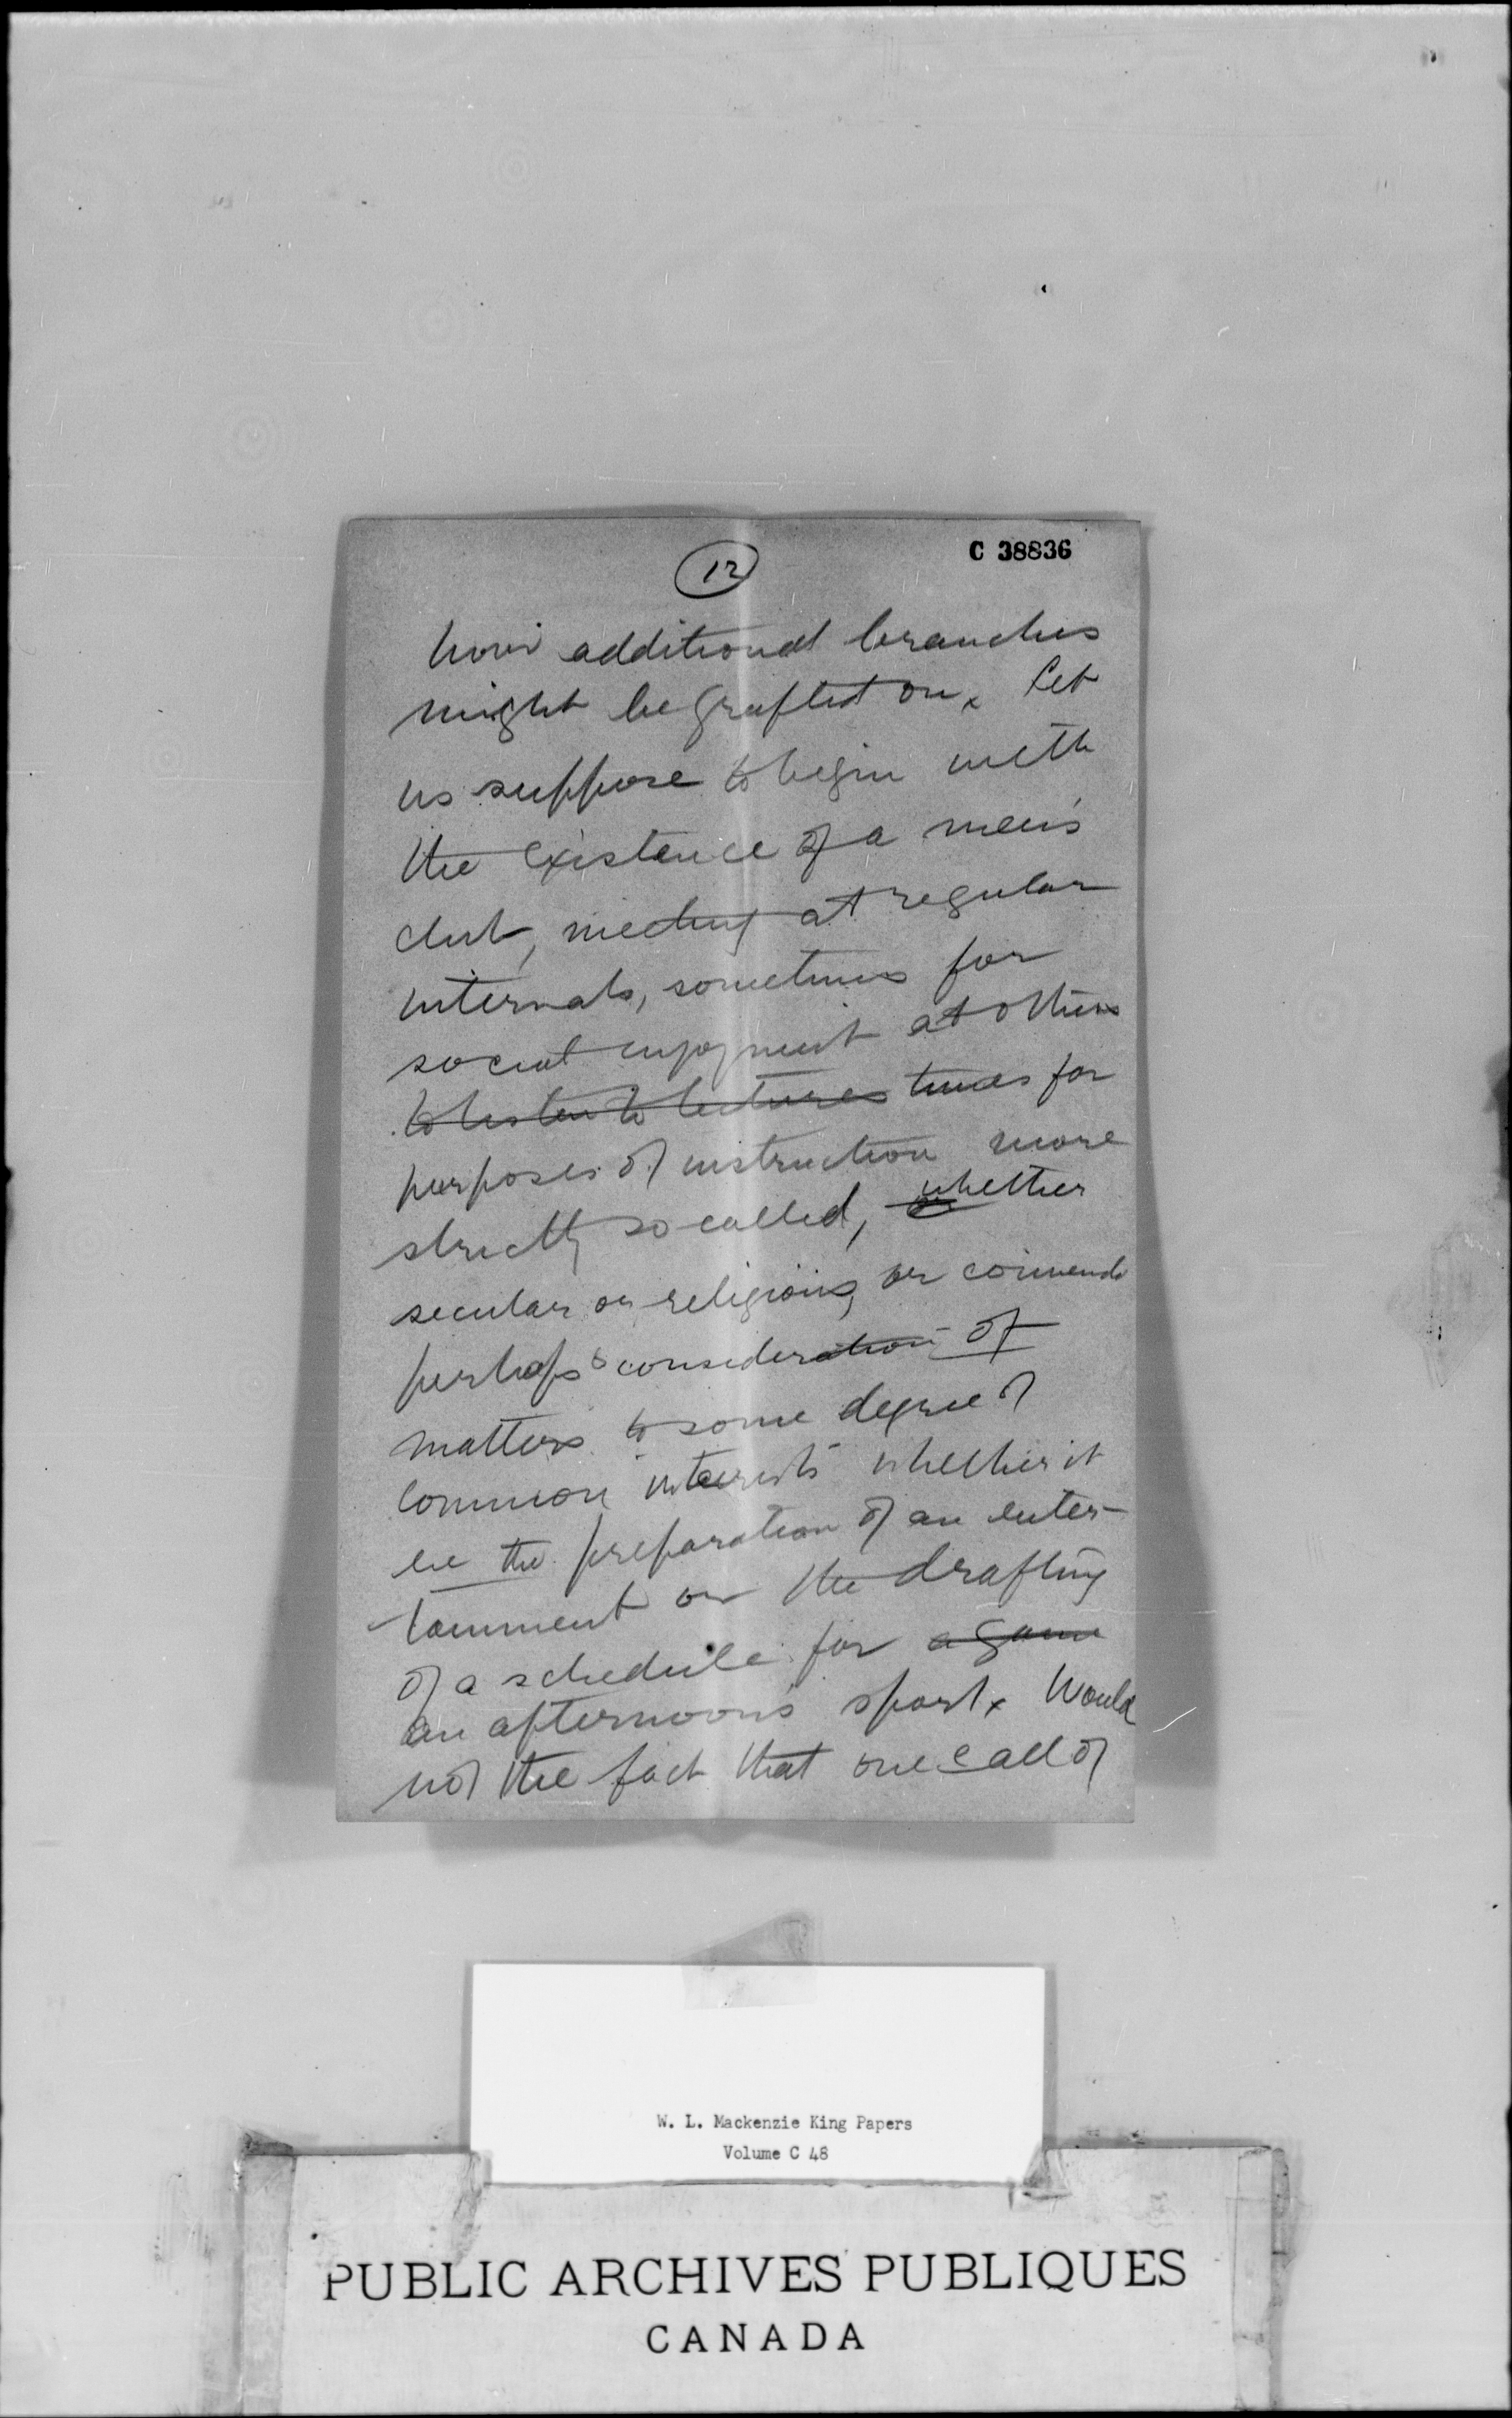 12
C 38836
how additional branches
might be grafted on x Let
us suppose to begin with
the existence of a men's
club, meeting at regular
intervals, sometimes for
social enjoyment at others
to listen to lectures times for
purposes of instruction more
strictly so called, whether
secular or religious, or
perhaps to consideration of
matters to some degree of
common interests whether it
be the preparation of an enter-
tainment or the drafting
of a schedule for a game
an afternoon's sport x Would
not the fact that one call of
W. L. Mackenzie King Papers
Volume C 48
PUBLIC ARCHIVES PUBLIQUES
CANADA